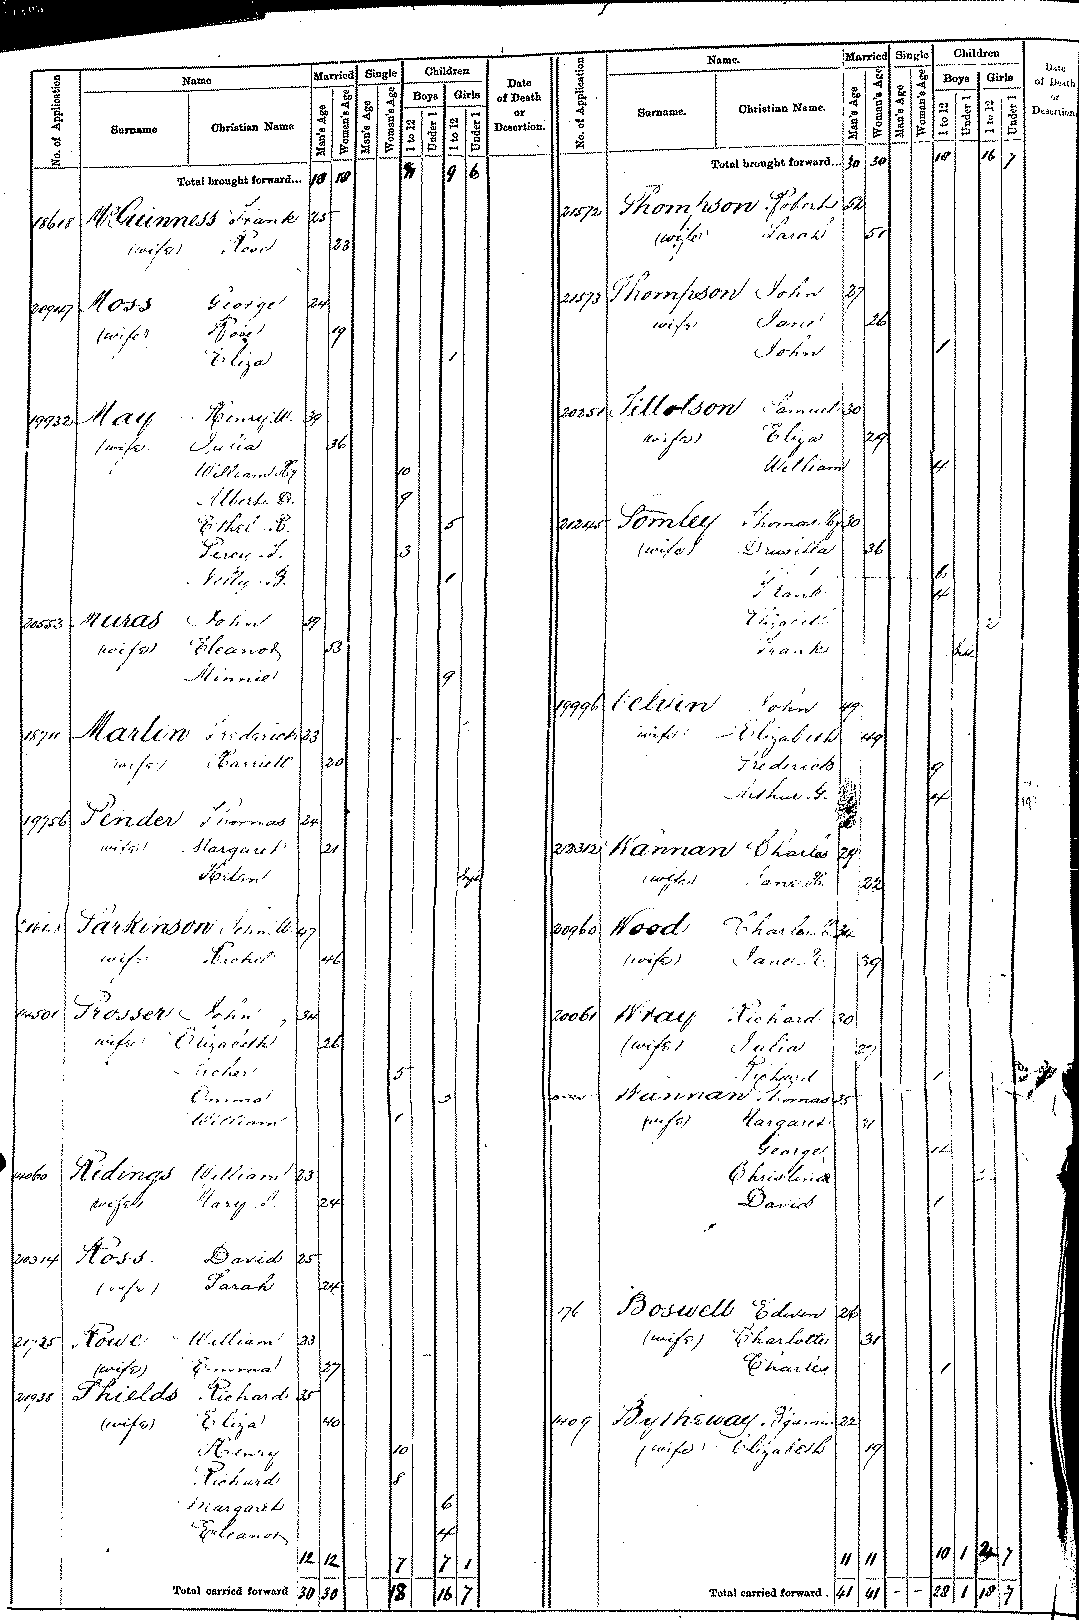 No. of Application Name Married Single Children Date of Death or Desertion.
Surname Christian Name Man's Age Woman's Age Man's Age Woman's Age Boys Girls
1 to 12 Under 1 1 to 12 Under 1
Total brought forward... 18 18 9 6
18618 McGuinness Frank 25
(wife) Rose 23
20947 Moss George 24
(wife) Rose 19
Eliza 1
19932 May Henry W. 39
(wife) Julia 36
William Hy 10
Albert E. 9
Ethel R. 5
Percy J. 3
Nelly B. 1
20553 Muras John 59
(wife) Eleanor 53
Minnie 9
18711 Martin Frederick 23
(wife) Harriett 20
19756 Pender Thomas 24
(wife) Margaret 21
Helen Inft
Parkinson John W. 47
wife Rachel 46
Prosser John 34
wife Elizabeth 26
5
Emma 3
William 1
Ridings William 23
(wife) Mary J. 24
20314 Ross David 25
(wife) Sarah 24
21725 Rowe William 33
(wife) Emma 27
21938 Shields Richard 35
(wife) Eliza 40
Henry 10
Richard 8
Margaret 6
Eleanor 4
12 12 7 7 1
Total carried forward 30 30 18 16 7
No. of Application Name. Married Single Children Date of Death or Desertion.
Surname. Christian Name. Man's Age Woman's Age Man's Age Woman's Age Boys Girls
1 to 12 Under 1 1 to 12 Under 1
Total brought forward... 30 30 18 16 7
21572 Thompson Robert 52
(wife) Sarah 51
21573 Thompson John 27
wife Jane 26
John 1
20251 Tillotson Samuel 30
(wife) Eliza 29
William 4
21245 Tomley Thomas Hy 30
(wife) Drusilla 36
6
Frank 4
Elizabeth 2
Frank Inft
19996 Velvin John 49
(wife) Elizabeth 49
Frederick 9
Arthur G. 4
22312 Wannan Charles 29
(wife) Jane R. 22
20960 Wood Charles E. 34
(wife) Jane R. 39
20061 Wray Richard 30
(wife) Julia 27
Richard 1
Wannan Thomas 35
(wife) Margaret 31
George 4
Christina
David 1
176 Boswell Edwin 26
(wife) Charlotte 31
Charles 1
1409 Bytheway Benjamin 22
(wife) Elizabeth 19
11 11 10 1 2 7
Total carried forward. 41 41 - - 28 1 18 7